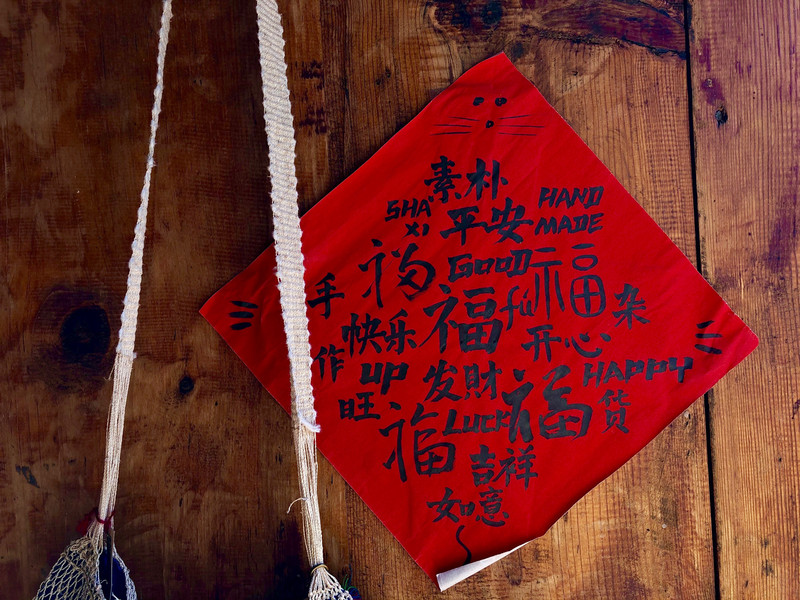 素朴
SHA XI
平安
HAND MADE
福
GOOD
福
手
福
fú
杂
快乐
开心
作
up
发财
HAPPY
旺
LUCK
福
货
福
吉祥
如意